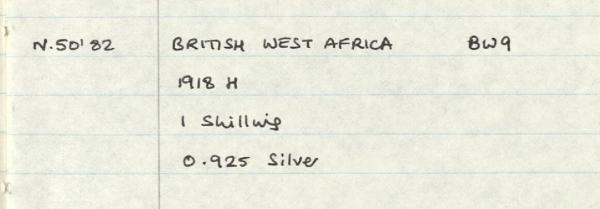 N.50'82 BRITISH WEST AFRICA BW9
1918 H
1 Shilling
0.925 Silver